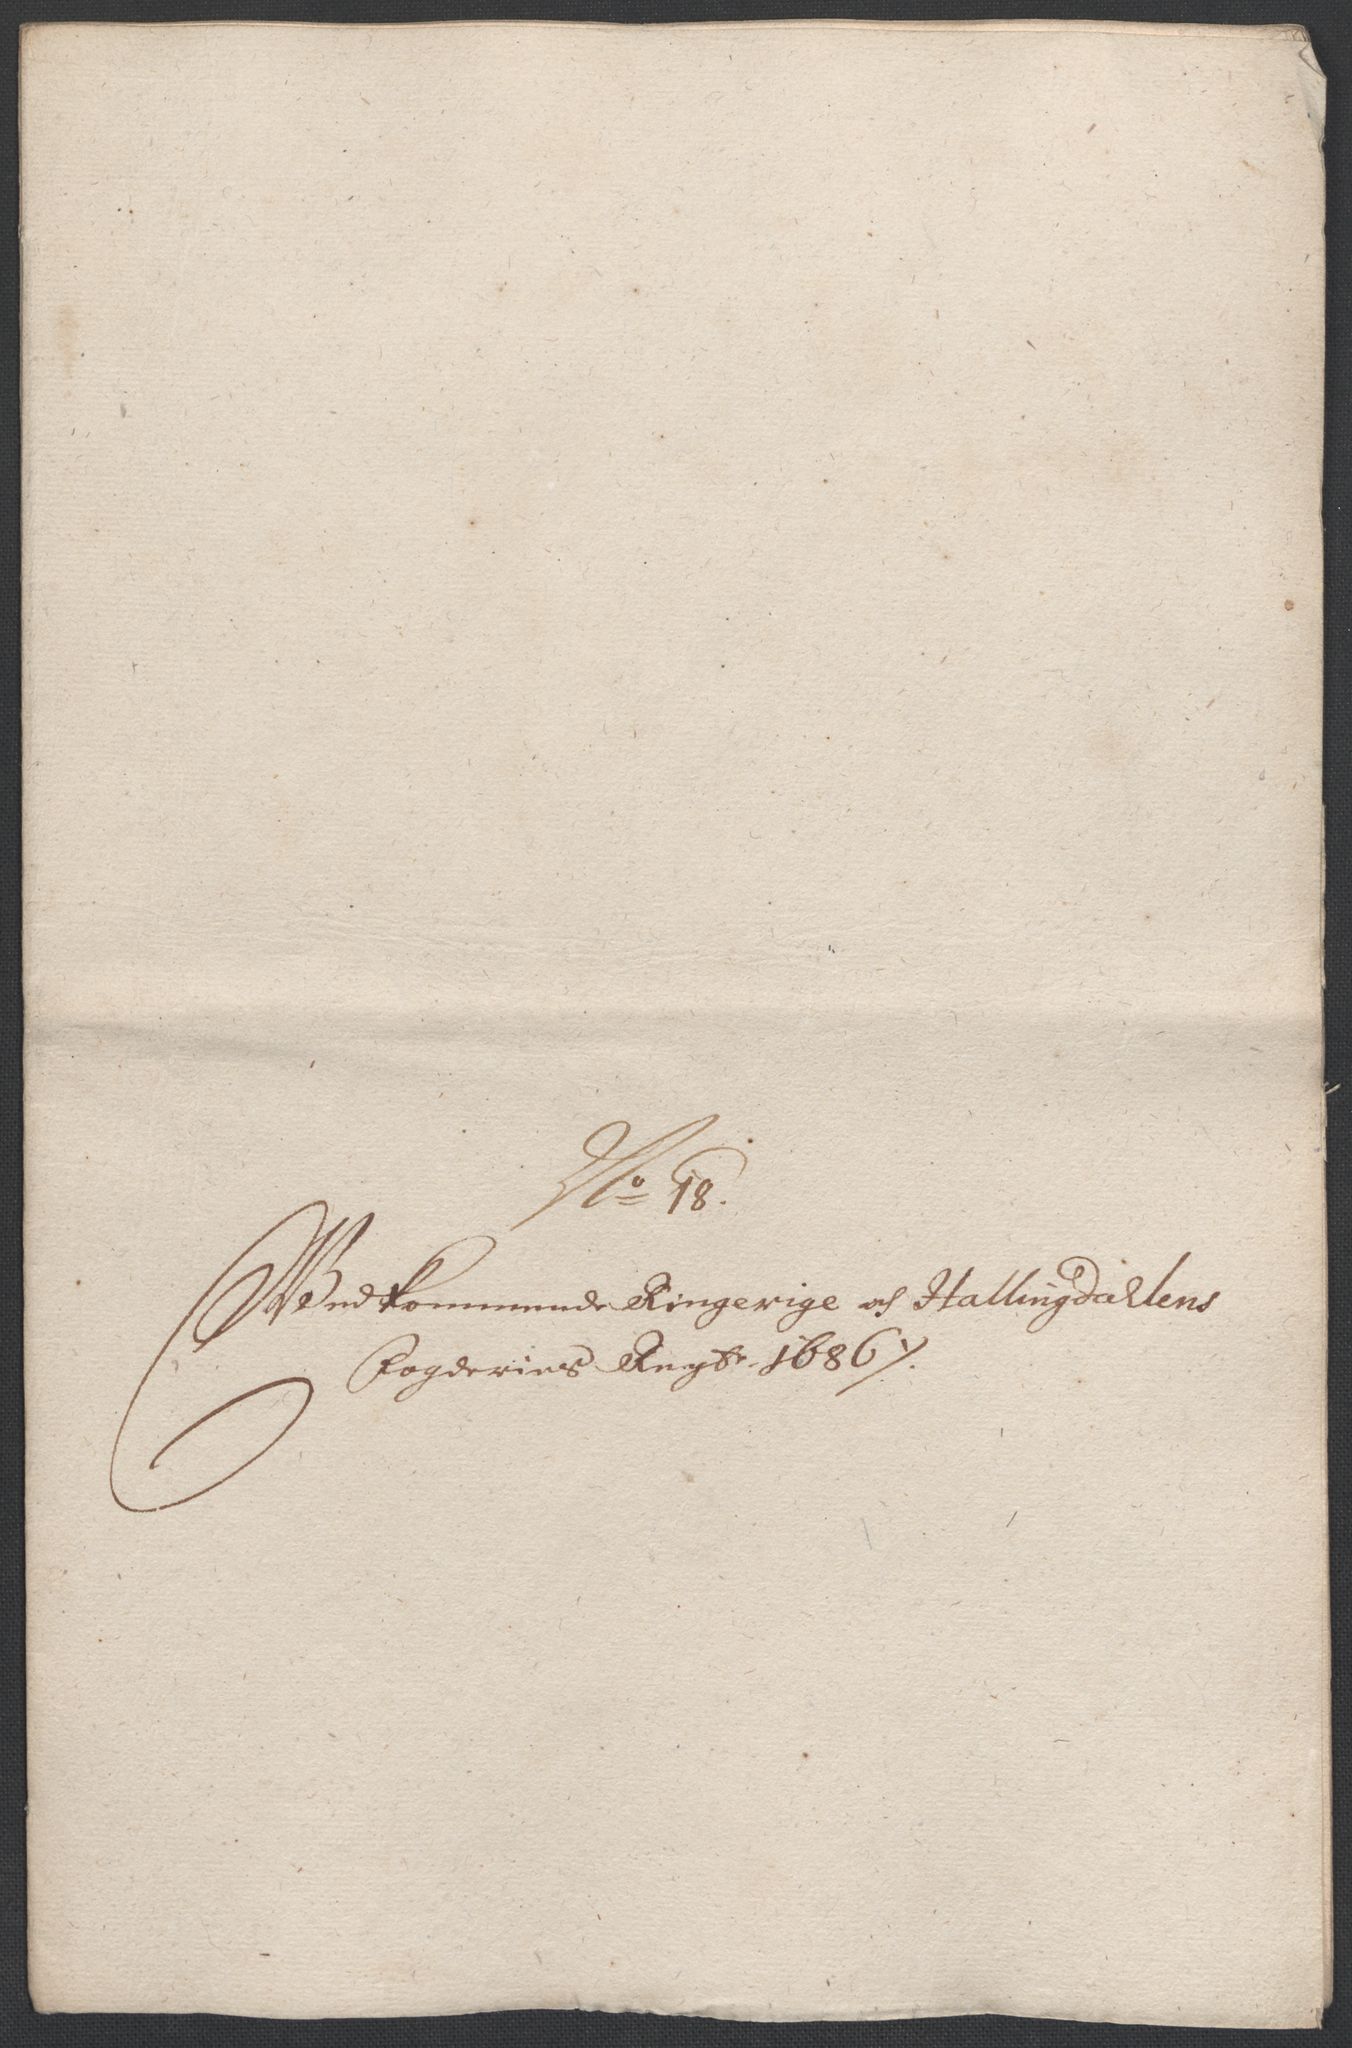 No 18.
Wedkommende Ringerige og Hallingdahlens
Fogderies Regsk 1686